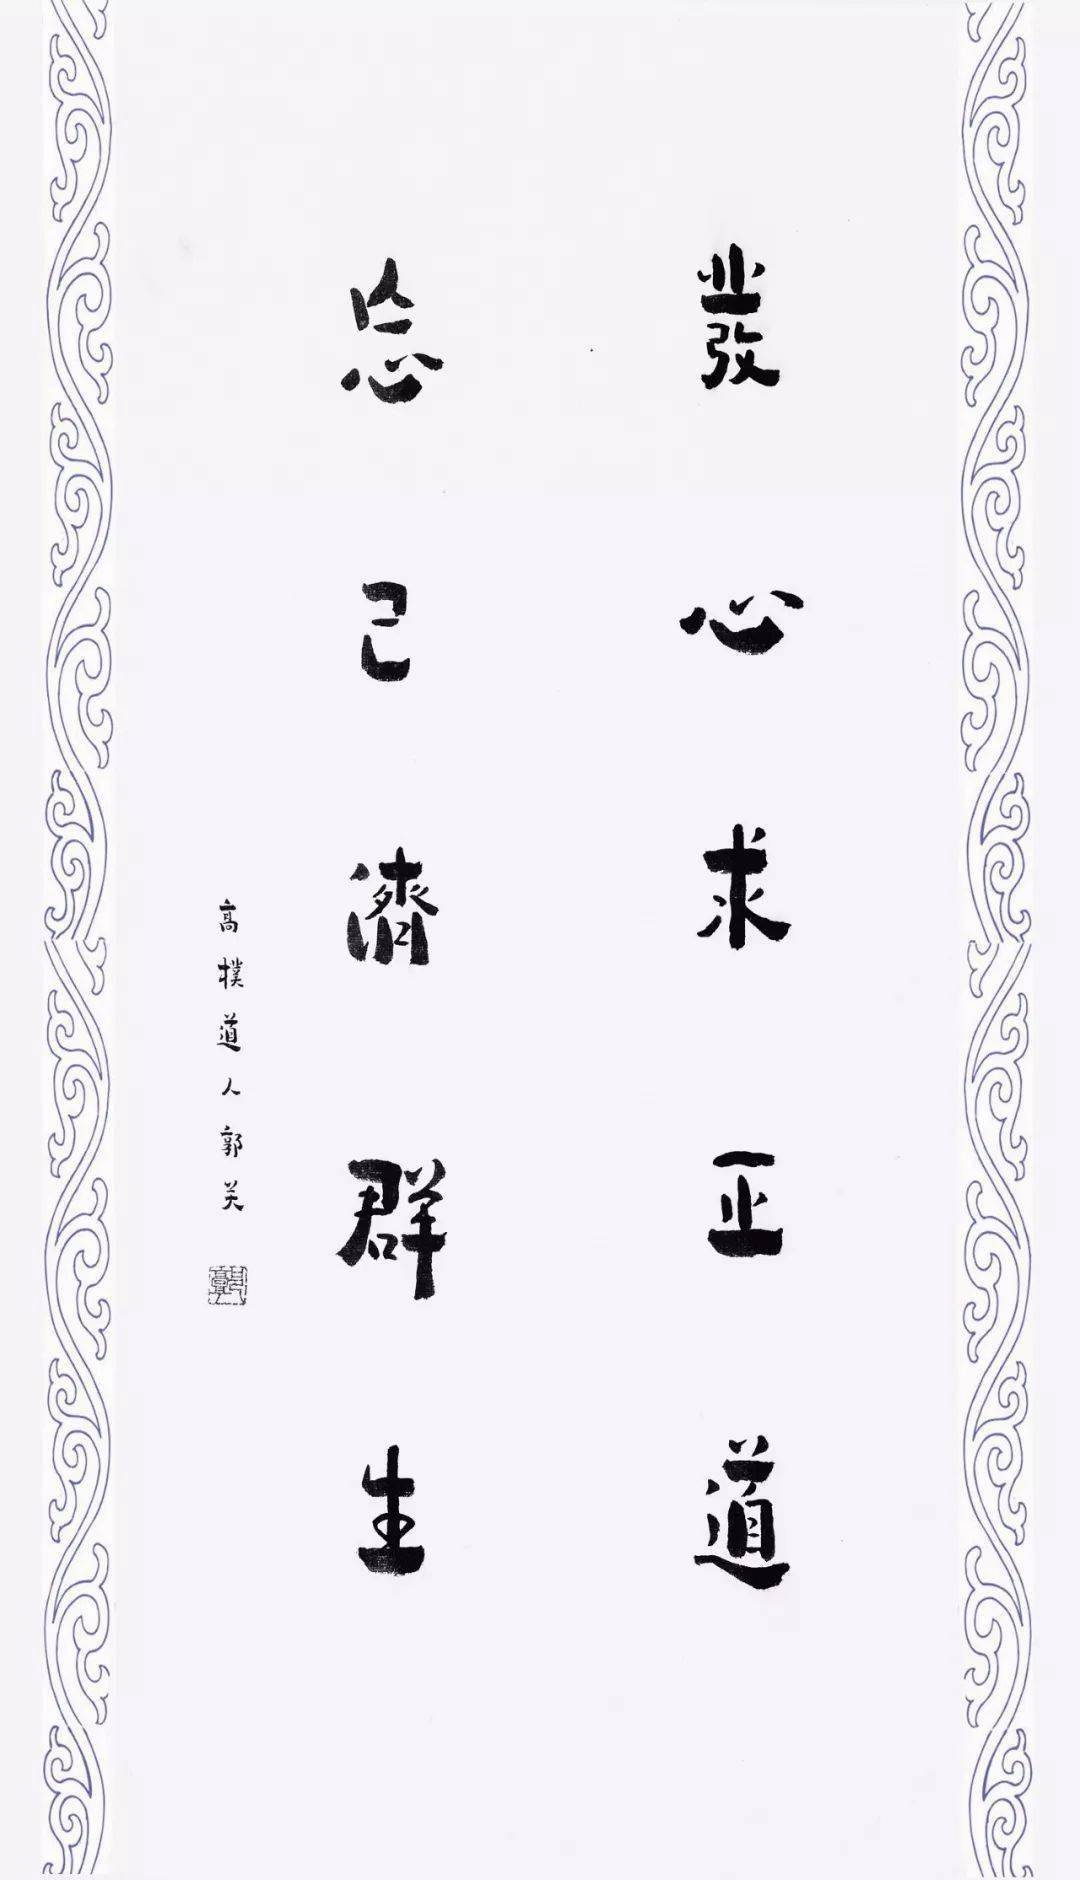 發心求正道
忘己濟群生
高樸道人郭关